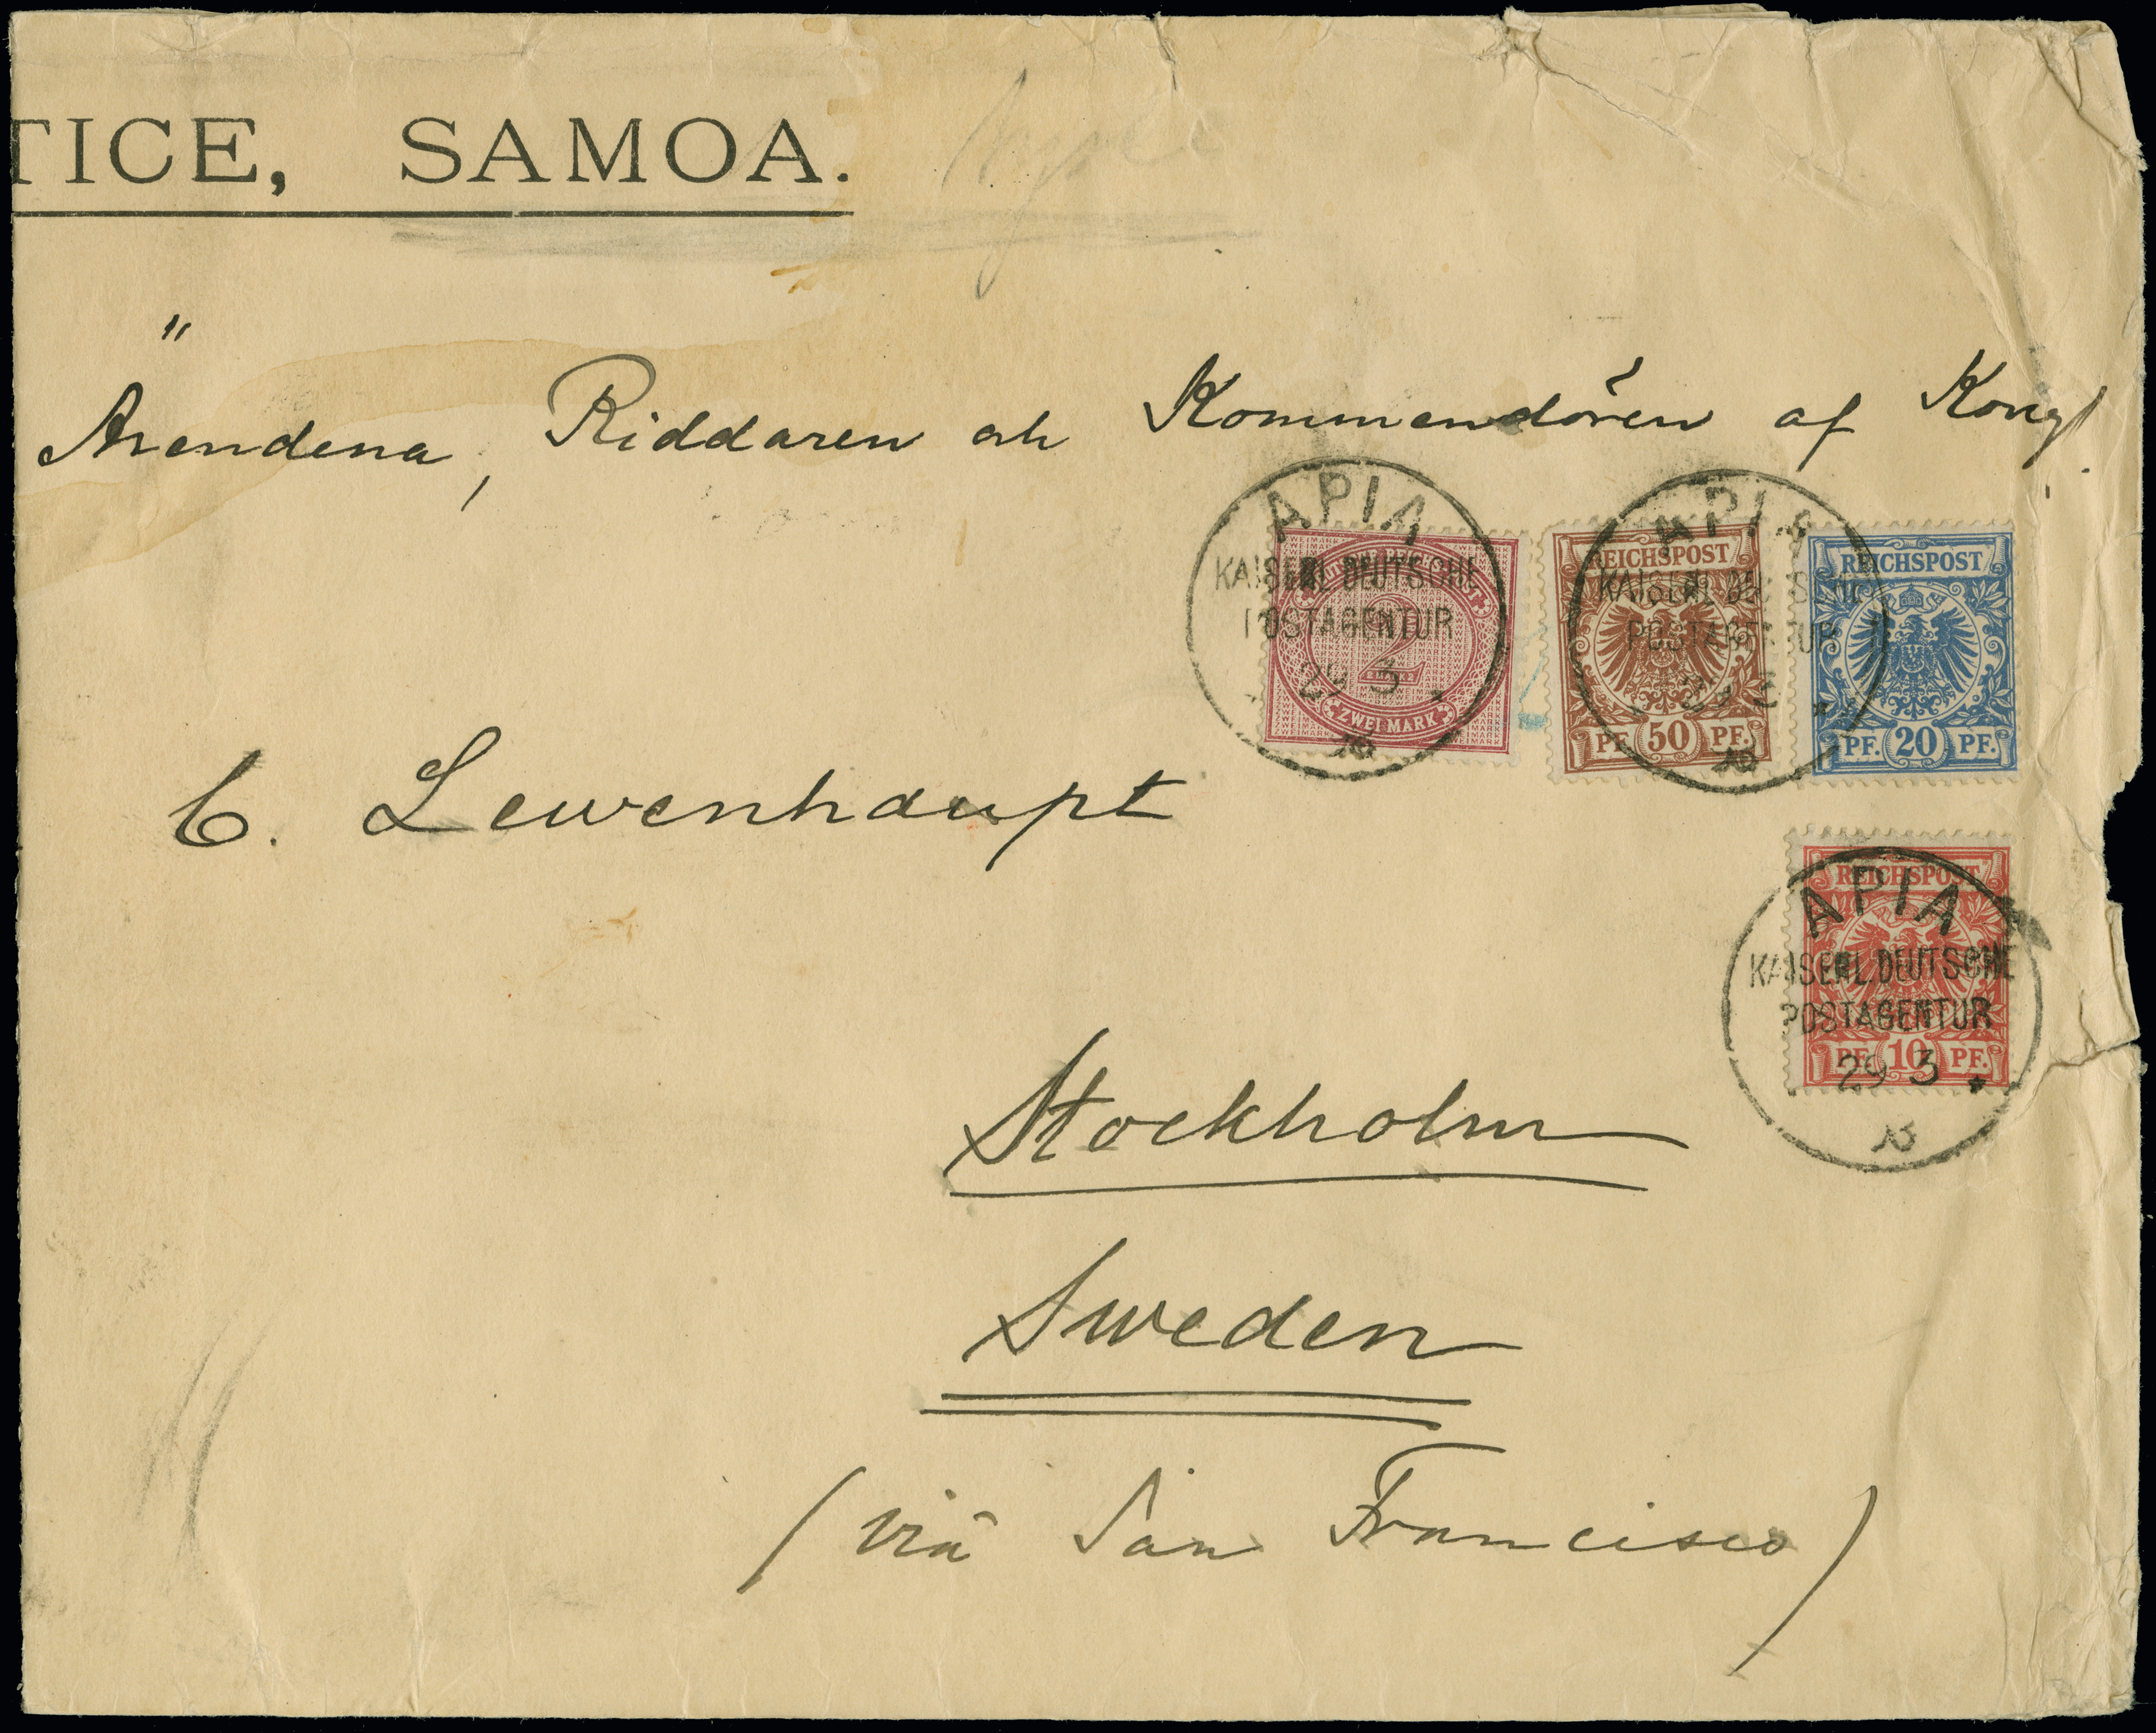 TICE, SAMOA.
Ärendena, Riddaren och Kommendören af Kongl.
APIA
KAISERL. DEUTSCHE
POSTAGENTUR
29 3
ZWEI MARK
2
APIA
KAISERL. DEUTSCHE
POSTAGENTUR
REICHSPOST
PF. 50 PF.
REICHSPOST
PF. 20 PF.
C. Lewenhaupt
REICHSPOST
PF. 10 PF.
APIA
KAISERL. DEUTSCHE
POSTAGENTUR
29 3
93
Stockholm
Sweden
(viâ San Francisco)